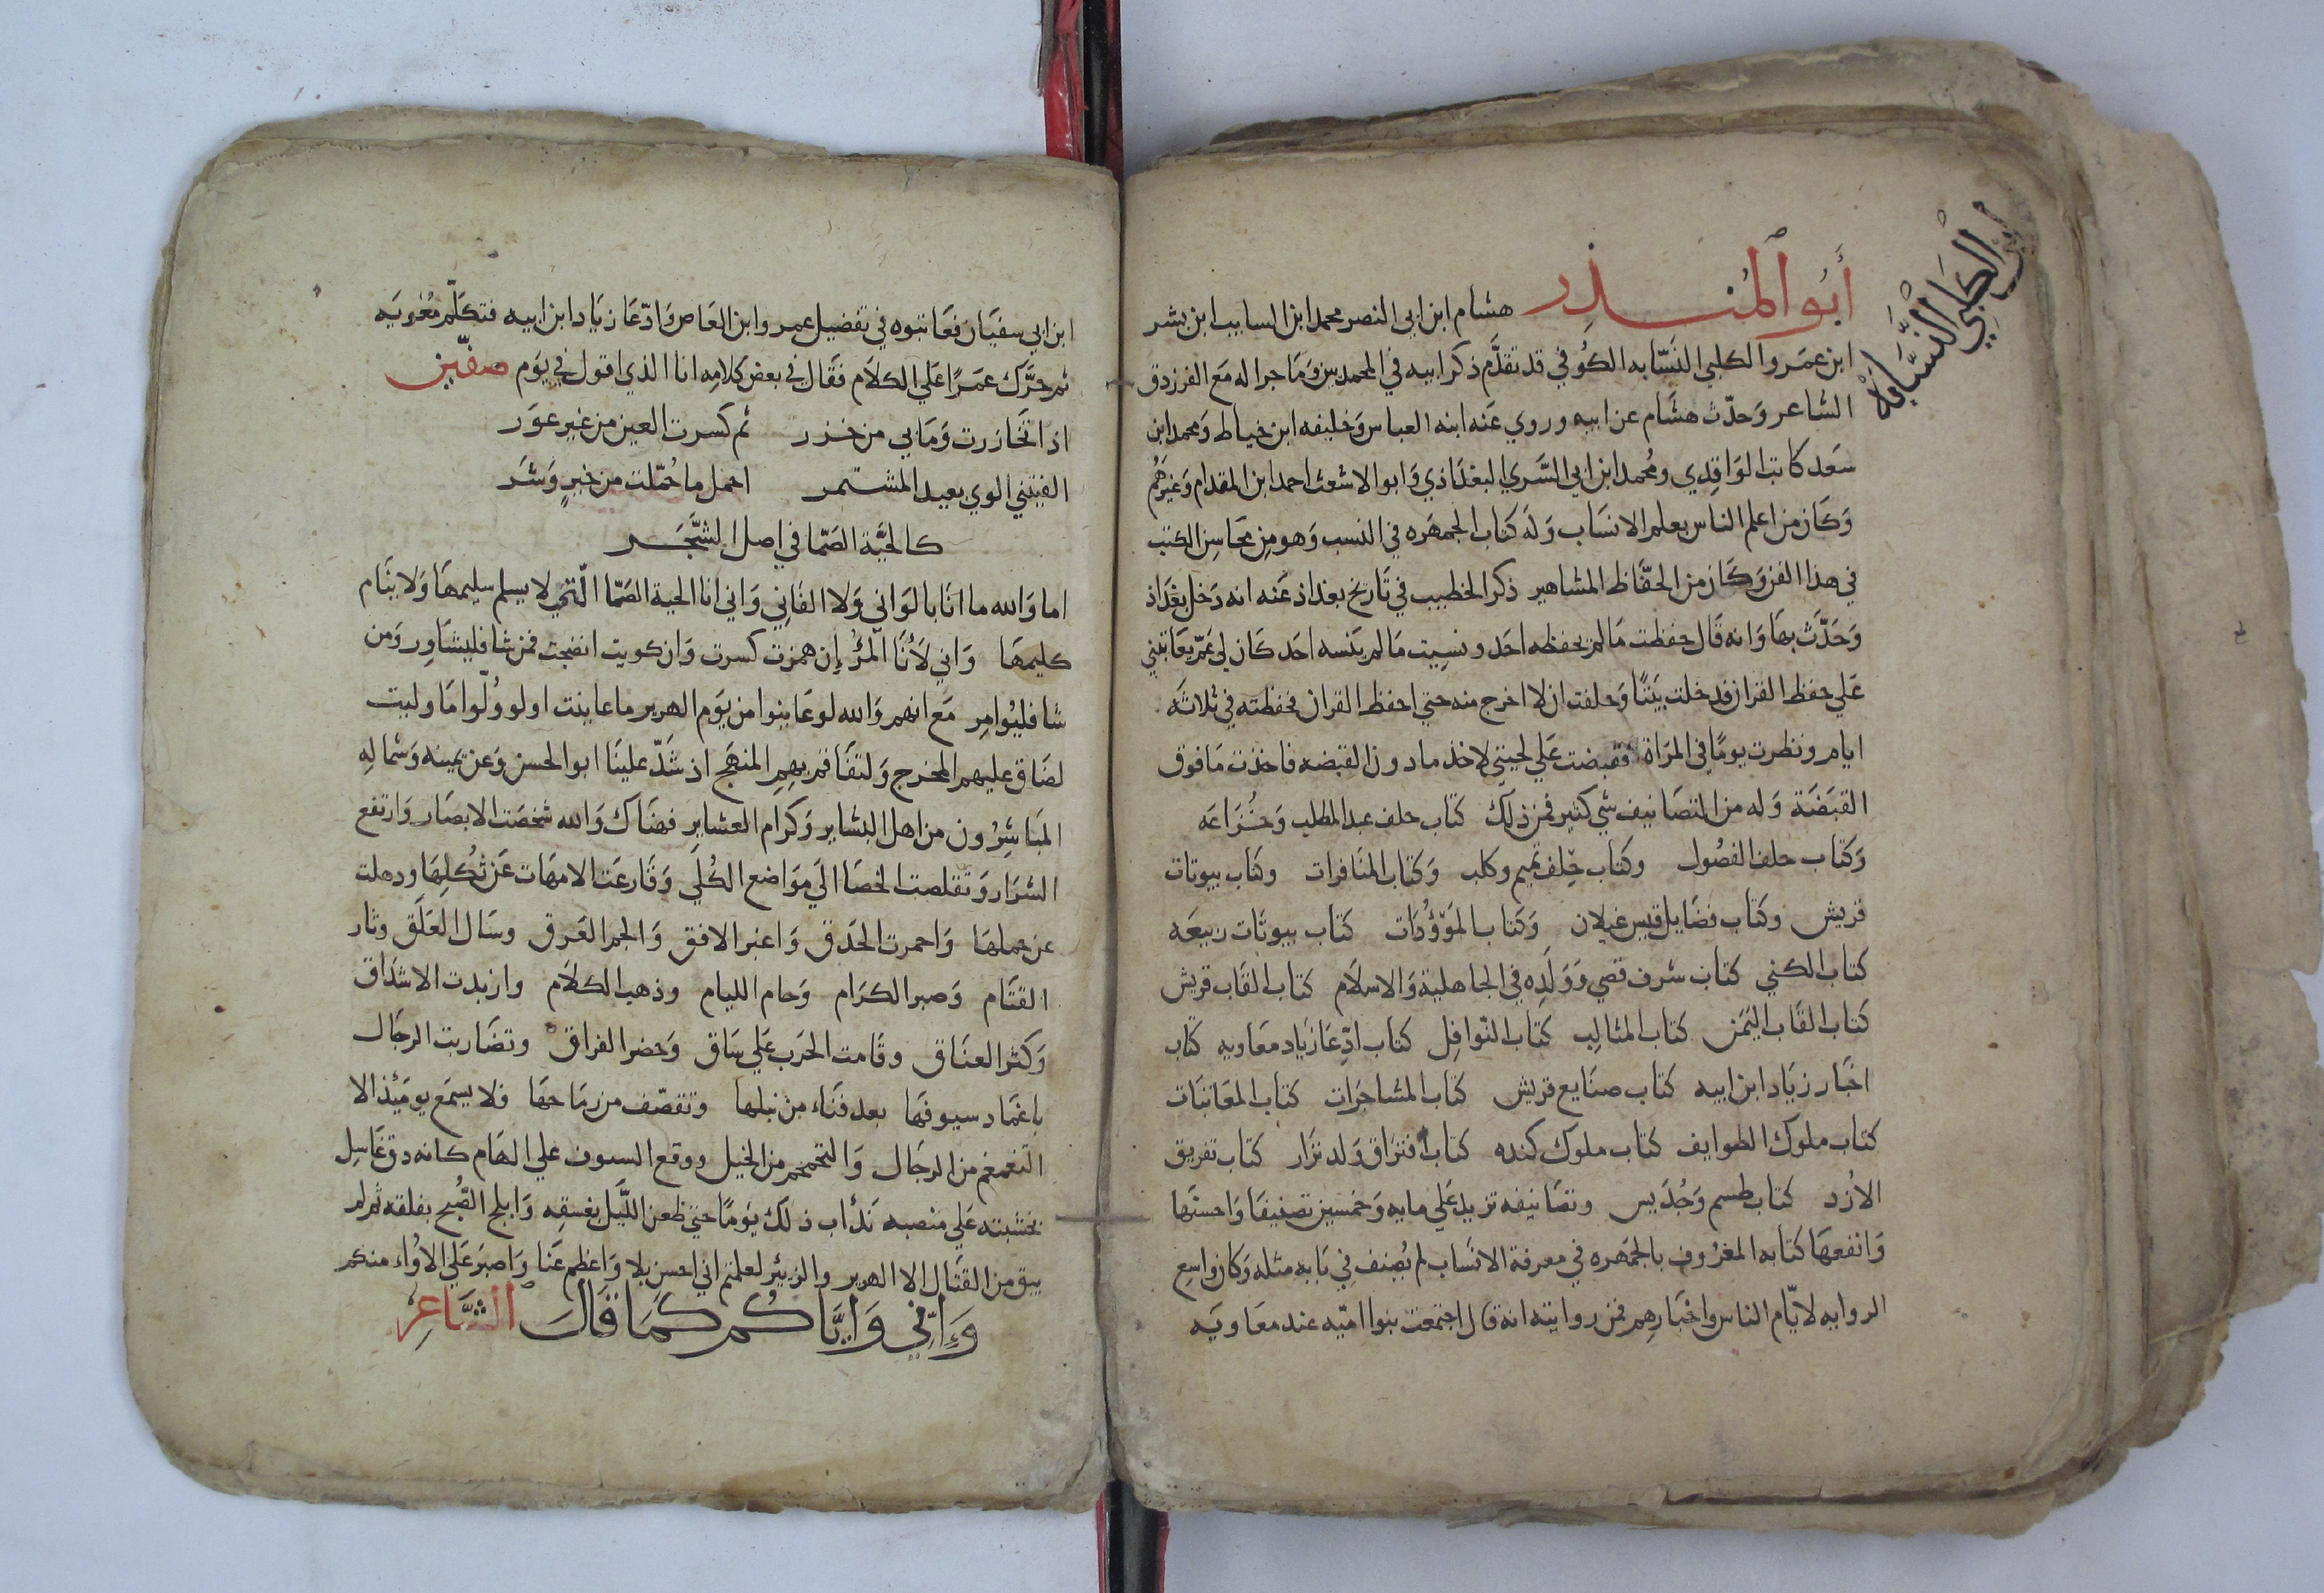 ابن الكلبي النسّابة
أبو المنذر هشام ابن ابي النصر محمد ابن السايب ابن بشر
ابن عمرو الكلبي النسّابه الكوفي قد تقدّم ذكر ابيه في المحمدين وما جرا له مع الفرزدق
الشاعر وحدّث هشام عن ابيه وروي عنه ابنه العباس وخليفه ابن خياط ومحمد ابن
سعد كاتب الواقدي ومحمد ابن ابي السّري البغداذي وابو الاشعث احمد ابن المقدام وغيرهم
وكان من اعلم الناس بعلم الانساب وله كتاب الجمهره في النسب وهو من محاسن الكتب
في هذا الفن وكان من الحفّاظ المشاهير ذكر الخطيب في تاريخ بغداذ عنه انه دخل بغداذ
وحدّث بها وانه قال حفظت ما لم يحفظه احد ونسيت ما لم ينسه احد كان لي عمّ يعاتبني
علي حفظ القران فدخلت بيتًا وحلفت ان لا اخرج منه حتي احفظ القران فحفظته في ثلاثه
ايام ونظرت يومًا في المراة فقبضت علي لحيتي لاخذ ما دون القبضه فاخذت ما فوق
القبضة وله من التصانيف شي كثير فمن ذلك كتاب حلف عبد المطلب وخزاعه
وكتاب حلف الفصول وكتاب حلف تميم وكلب وكتاب المنافرات وكتاب بيوتات
قريش وكتاب فضايل قيس غيلان وكتاب الموؤدات كتاب بيوتات ربيعه
كتاب الكني كتاب شرف قصي وولده في الجاهلية والاسلام كتاب القاب قريش
كتاب القاب اليمن كتاب المثالب كتاب النّوافل كتاب ادّعا زياد معاويه كتاب
اخبار زياد ابن ابيه كتاب صنايع قريش كتاب المشاجرات كتاب المعاتبات
كتاب ملوك الطوايف كتاب ملوك كنده كتاب افتراق ولد نزار كتاب تفريق
الازد كتاب طسم وجديس وتصانيفه تزيد علي مايه وخمسين تصنيفا واحسنها
وانفعها كتابه المعروف بالجمهره في معرفة الانساب لم يصنف في بابه مثله وكان واسع
الروايه لايّام الناس واخبارهم فمن روايته انه قال اجتمعت بنوا اميّه عند معاويه
ابن ابي سفيان فعاتبوه في تفضيل عمرو ابن العاص وادّعا زياد ابن ابيه فتكلّم معويه
ثم حرّك عمرًا علي الكلام فقال في بعض كلامه انا الذي اقول في يوم صفّين
اذا تخازرت وما بي من خزر ثم كسرت العين من غير عور
الفيتني الوي بعيد المشتمر احمل ما حمّلت من خير وشر
كالحيّة الصمّا في اصل الشّجر
اما والله ما انا بالواني ولا الفاني واني انا الحية الصمّا الّتي لا يسلم سليمها ولا ينام
كليمها واني لانا المرؤ إن همزت كسرت وان كويت انضجت فمن شا فليشاور ومن
شا فليوامر مع انهم والله لو عاينوا من يوم الهرير ما عاينت او لو ولّوا ما وليت
لضاق عليهم المخرج ولتفاقم بهم المنهج اذ شدّ علينا ابو الحسن وعن يمينه وشماله
المباشرون من اهل البشاير وكرام العشاير فهناك والله شخصت الابصار وارتفع
الشرار وتقلصت الخصا الي مواضع الكلي وقارعت الامهات عن ثكلها وذهلت
عن حملها واحمرت الحدق واغبر الافق والجم العرق وسال العلق وثار
القتام وصبر الكرام وخام الليام وذهب الكلام وازبدت الاشداق
وكثر العناق وقامت الحرب علي ساق وحضر الفراق وتضاربت الرجال
باغماد سيوفها بعد فناء من نبلها وتقصّف من رماحها فلا يسمع يوميذ الا
التغمغم من الرجال والتحمحم من الخيل ووقع السيوف علي الهام كانه دق غاسل
بخشبته علي منصبه ندأب ذلك يومًا حتي طعن اللّيل بغسقه وابلج الصّبح بفلقه ثم لم
يبق من القتال الا الهرير والزيئر لعلمتم اني احسن بلا واعظم عنا واصبر علي الاواء منكم
وإنّي وإيّاكم كما قال الشّاعر